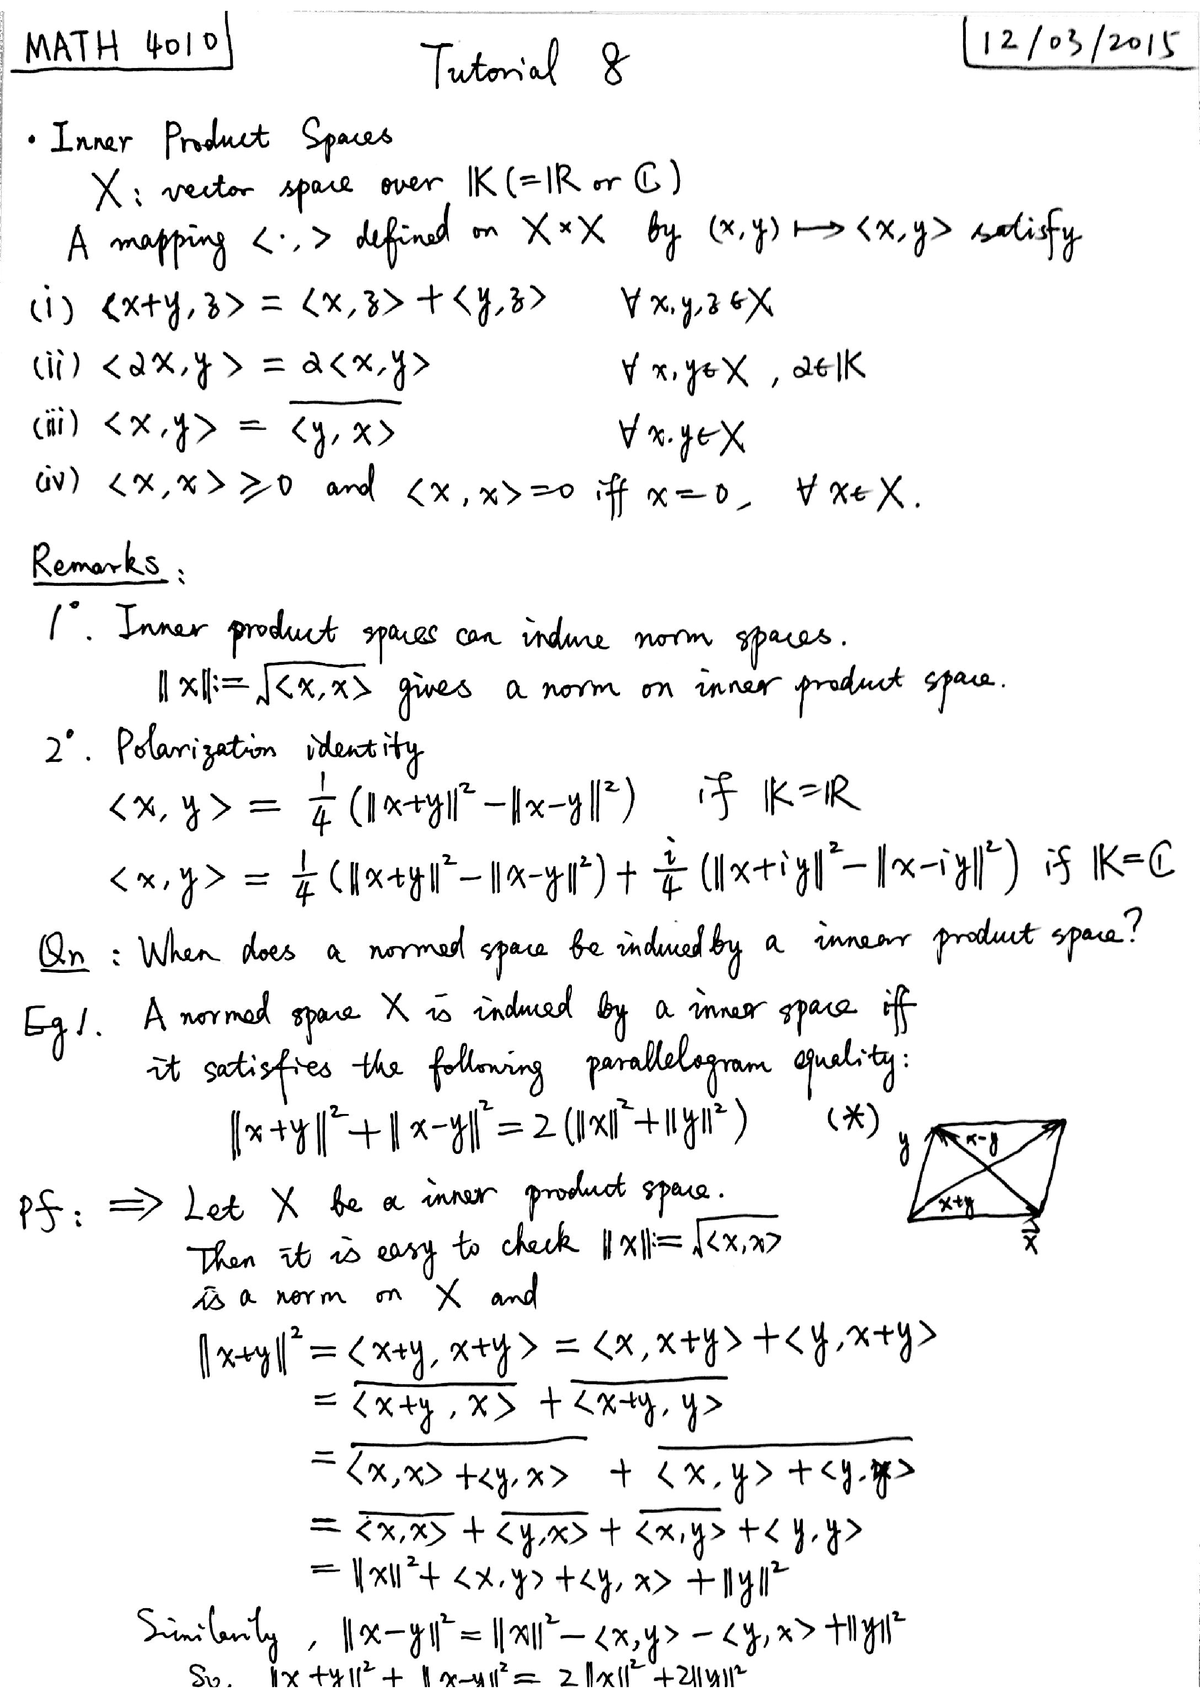 MATH 4010
Tutorial 8
12/03/2015
• Inner Product Spaces
X: vector space over 𝕂 (=ℝ or ℂ)
A mapping <·,> defined on X×X by (x,y) ↦ <x,y> satisfy
(i) <x+y,z> = <x,z> + <y,z> ∀ x,y,z ∈ X
(ii) <αx,y> = α<x,y> ∀ x,y ∈ X , α ∈ 𝕂
(iii) <x,y> = \overline{<y,x>} ∀ x.y ∈ X
(iv) <x,x> ≥ 0 and <x,x> = 0 iff x = 0, ∀ x ∈ X.
Remarks:
1°. Inner product spaces can induce norm spaces.
‖x‖:= √<x,x> gives a norm on inner product space.
2°. Polarization identity
<x,y> = 1/4 (‖x+y‖² - ‖x-y‖²) if 𝕂=ℝ
<x,y> = 1/4 (‖x+y‖² - ‖x-y‖²) + i/4 (‖x+iy‖² - ‖x-iy‖²) if 𝕂=ℂ
Qn : When does a normed space be induced by a innear product space?
Eg1. A normed space X is induced by a inner space iff
it satisfies the following parallelogram equality:
‖x+y‖² + ‖x-y‖² = 2(‖x‖² + ‖y‖²) (*)
y x-y
x+y
\vec{x}
Pf: ⇒ Let X be a inner product space.
Then it is easy to check ‖x‖:= √<x,x>
is a norm on X and
‖x+y‖² = <x+y, x+y> = <x, x+y> + <y, x+y>
= \overline{<x+y, x>} + \overline{<x+y, y>}
= \overline{<x,x> + <y,x>} + \overline{<x,y> + <y,y>}
= \overline{<x,x>} + \overline{<y,x>} + \overline{<x,y>} + <y,y>
= ‖x‖² + <x,y> + <y,x> + ‖y‖²
Similarily, ‖x-y‖² = ‖x‖² - <x,y> - <y,x> + ‖y‖²
So. ‖x+y‖² + ‖x-y‖² = 2‖x‖² + 2‖y‖²